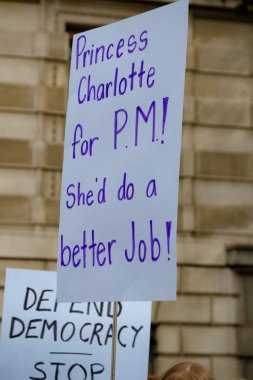 Princess
Charlotte
for P.M.!
She'd do a
better Job!
DEFEND
DEMOCRACY
STOP